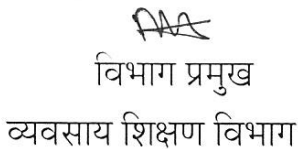 विभाग प्रमुख
व्यवसाय शिक्षण विभाग